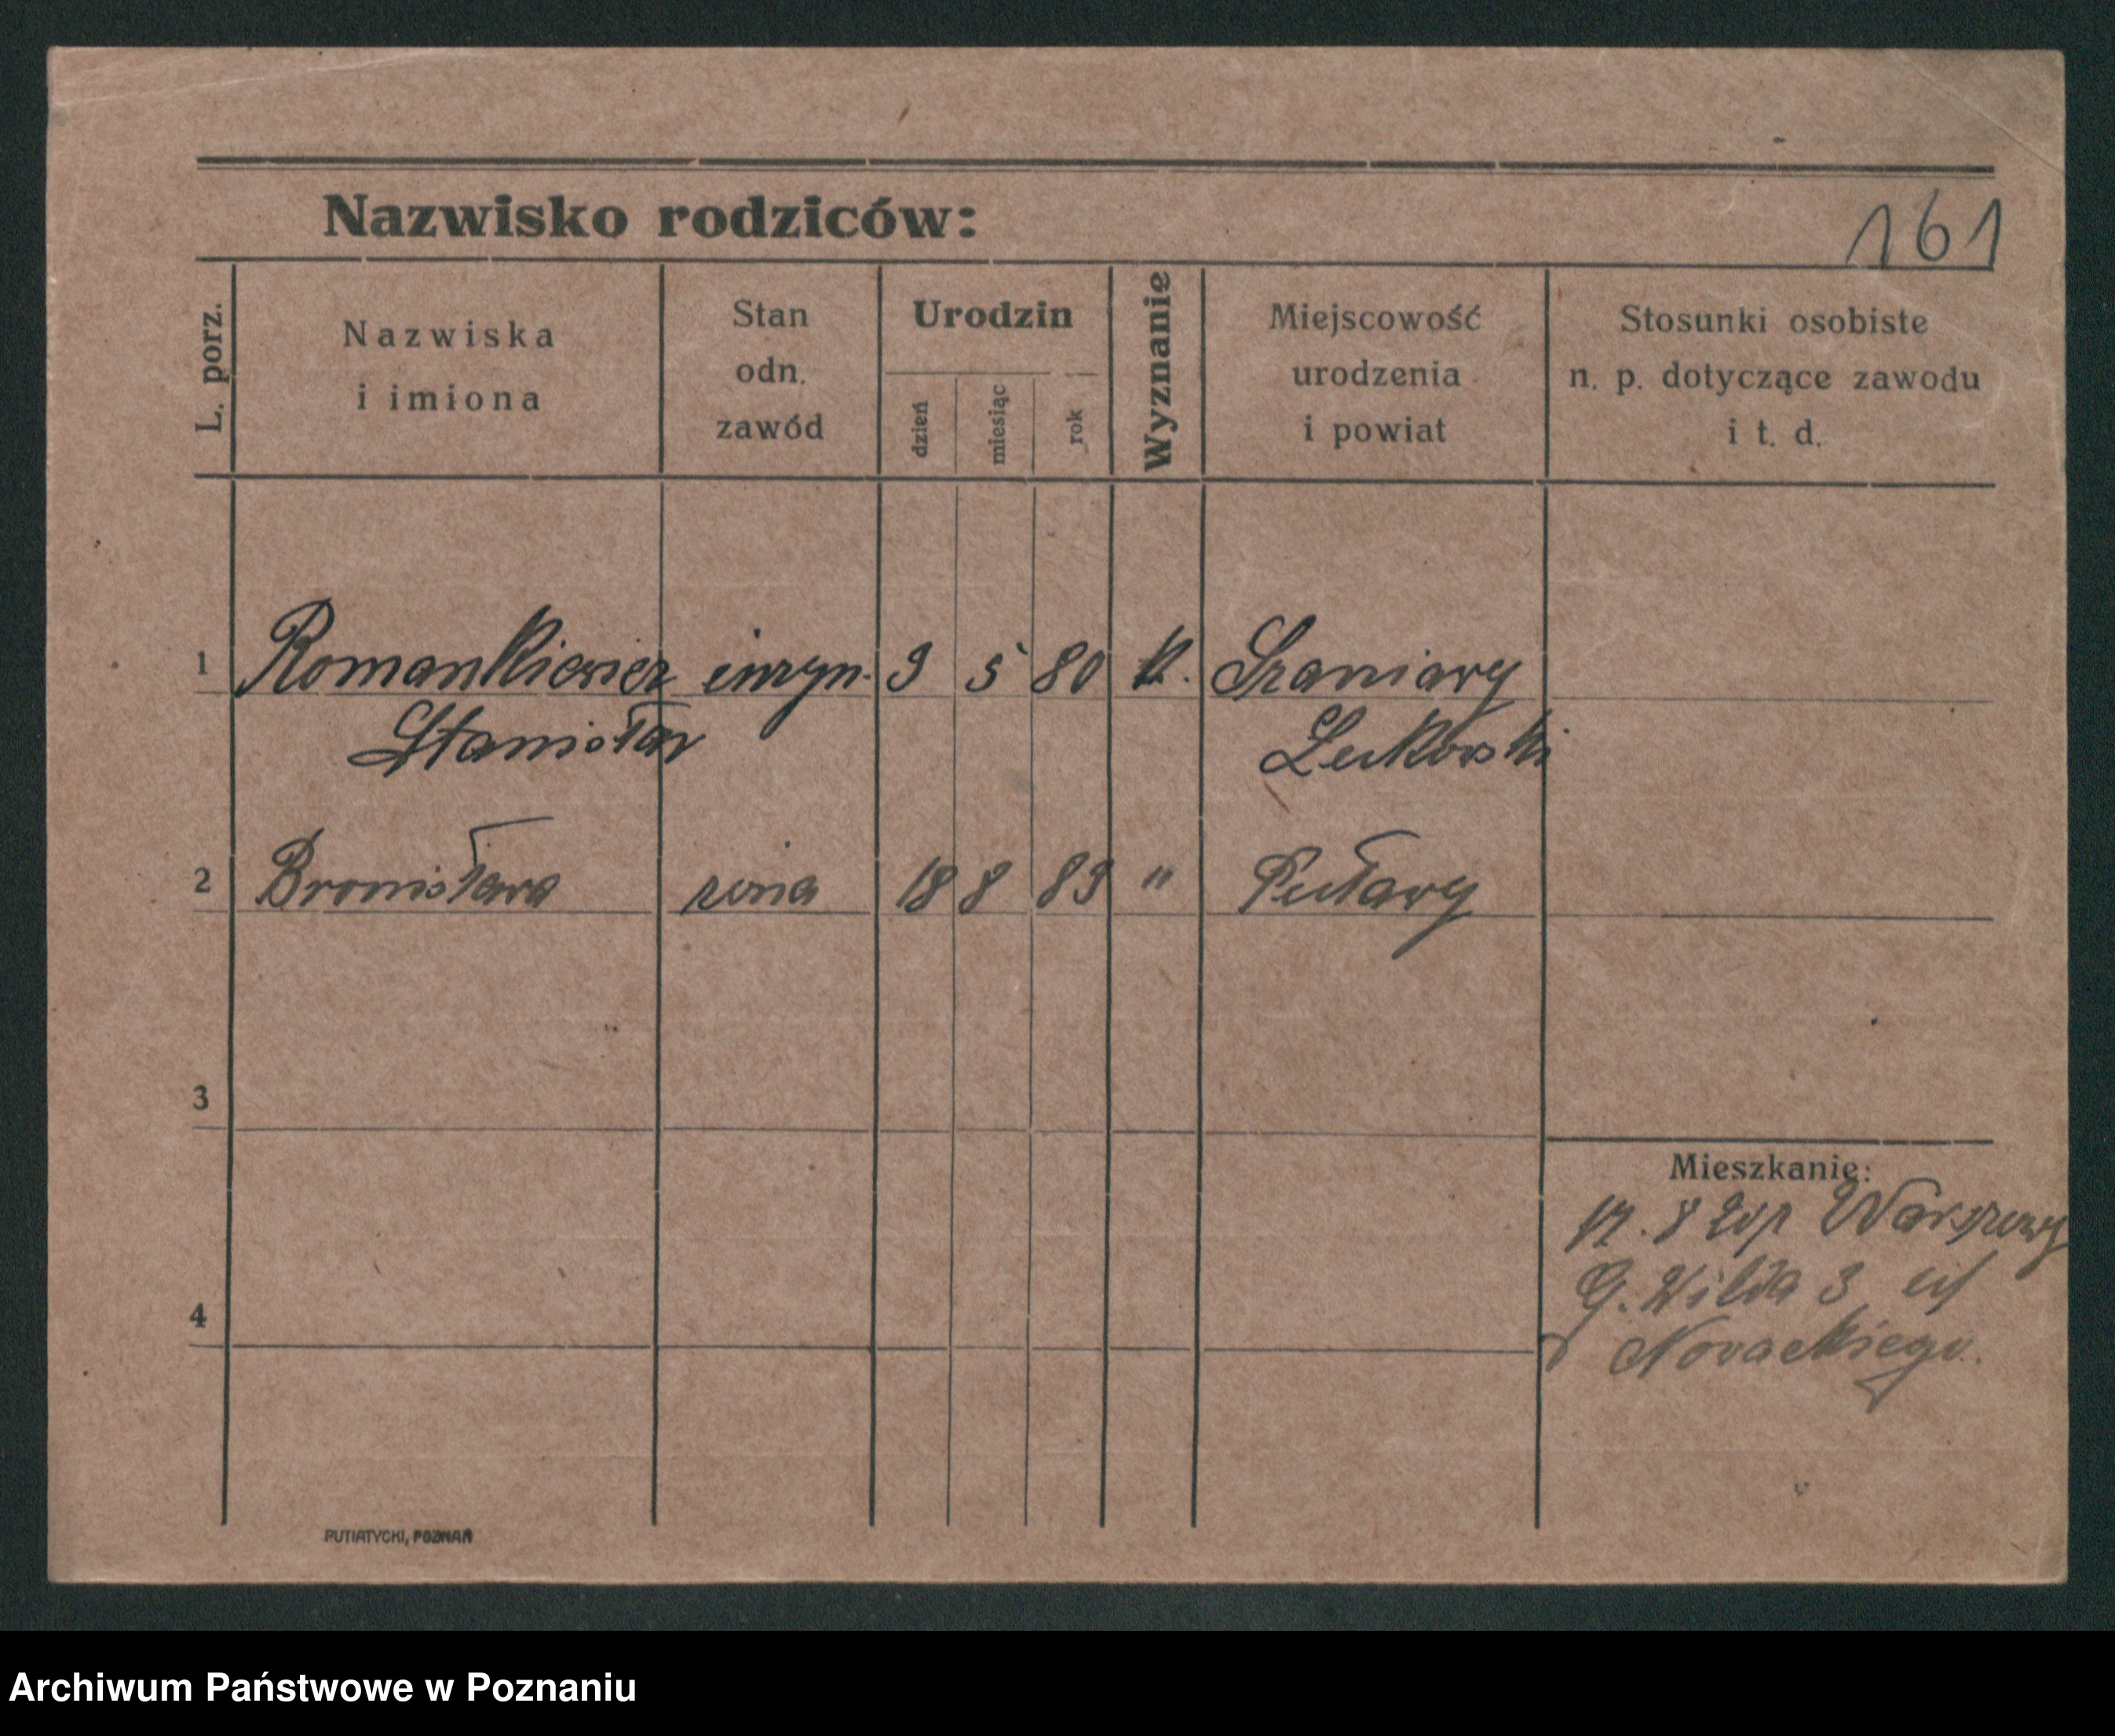 Nazwisko rodziców:
161
L. porz.
Nazwiska
i imiona
Stan
odn.
zawód
Urodzin
dzień
miesiąc
rok
Wyznanie
Miejscowość
urodzenia
i powiat
Stosunki osobiste
n. p. dotyczące zawodu
i t. d.
1 Romankiewicz inżyn. 9 5 80 k. Szaniawy
Stanisław Łukowski
2 Bronisława żona 18 8 89 " Puławy
3
Mieszkanie:
17. 8 20 Warszawy
G. Wilda 3
4
Nowackiego.
PUTIATYCKI, POZNAŃ
Archiwum Państwowe w Poznaniu